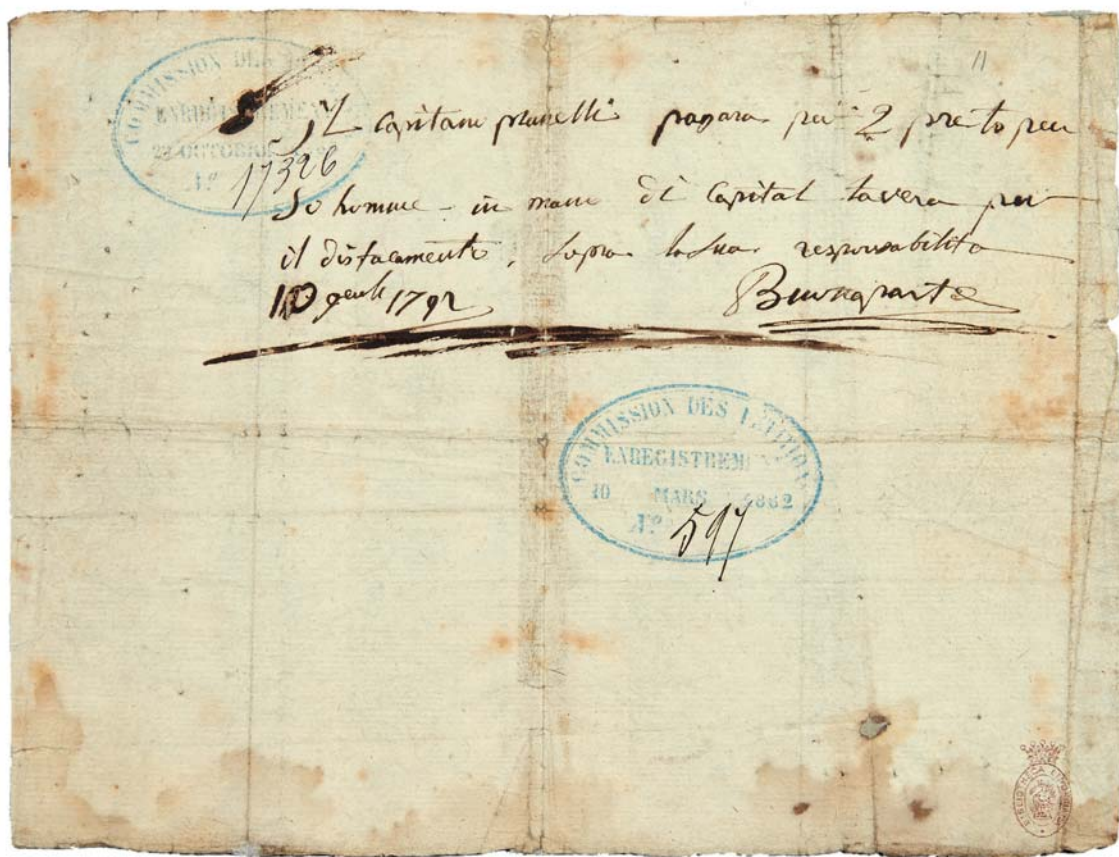 11
COMMISSION DES
ENREGISTREMENT
22 OCTOBRE
N° 17326
Il capitane prunelli pagara per 2 presto per
50 homme in mane di capital tavera per
il distacamento, sopra la sua responsabilita
10 1792
Buonaparte
COMMISSION DES
ENREGISTREMENT
10 MARS 1862
N° 597
BIBLIOTHECA